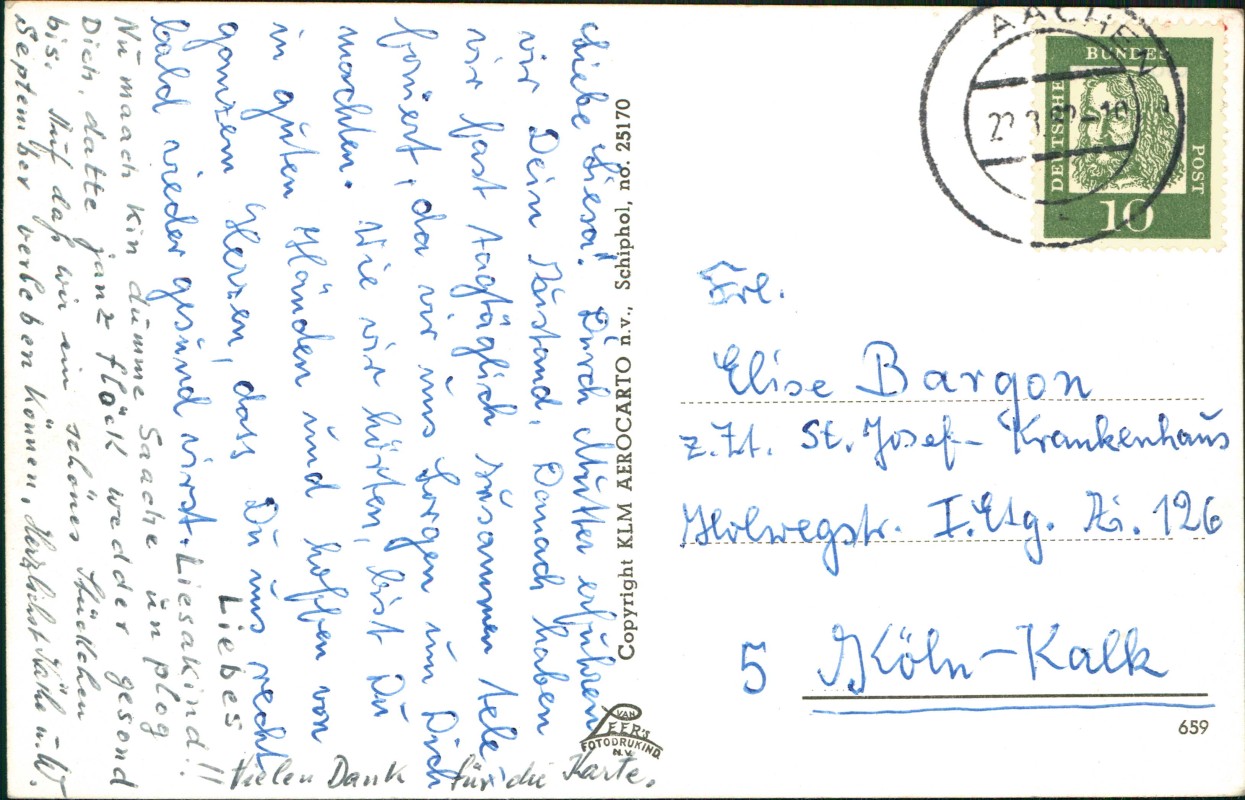 Liebe Liesa! Durch Mutter erfuhren
wir Dein Zustand. Danach haben
wir fast tagtäglich zusammen tele-
foniert, da wir uns Sorgen um Dich
machten. Wie wir hörten, bist Du
in guten Händen und hoffen von
ganzem Herzen, dass Du uns recht
bald wieder gesund wirst.
Liebes
Liesakind!!
Nu maach kin dumme Saache un plog
Dich, datte janz flöck wedder gesond
bis. Auf daß wir ein schönes Stückchen
September verleben können. Herzlichst Käthe u. W.
Vielen Dank für die Karte.
Copyright KLM AEROCARTO n.v., Schiphol, no. 25170
VAN
LEER'S
FOTODRUKIND.
N.V.
AACHEN
DEUTSCHE
BUNDES
POST
10
Frl.
Elise Bargon
z.Zt. St. Josef-Krankenhaus
Höhwegstr. I. Etg. Zi. 126
5 Köln-Kalk
659